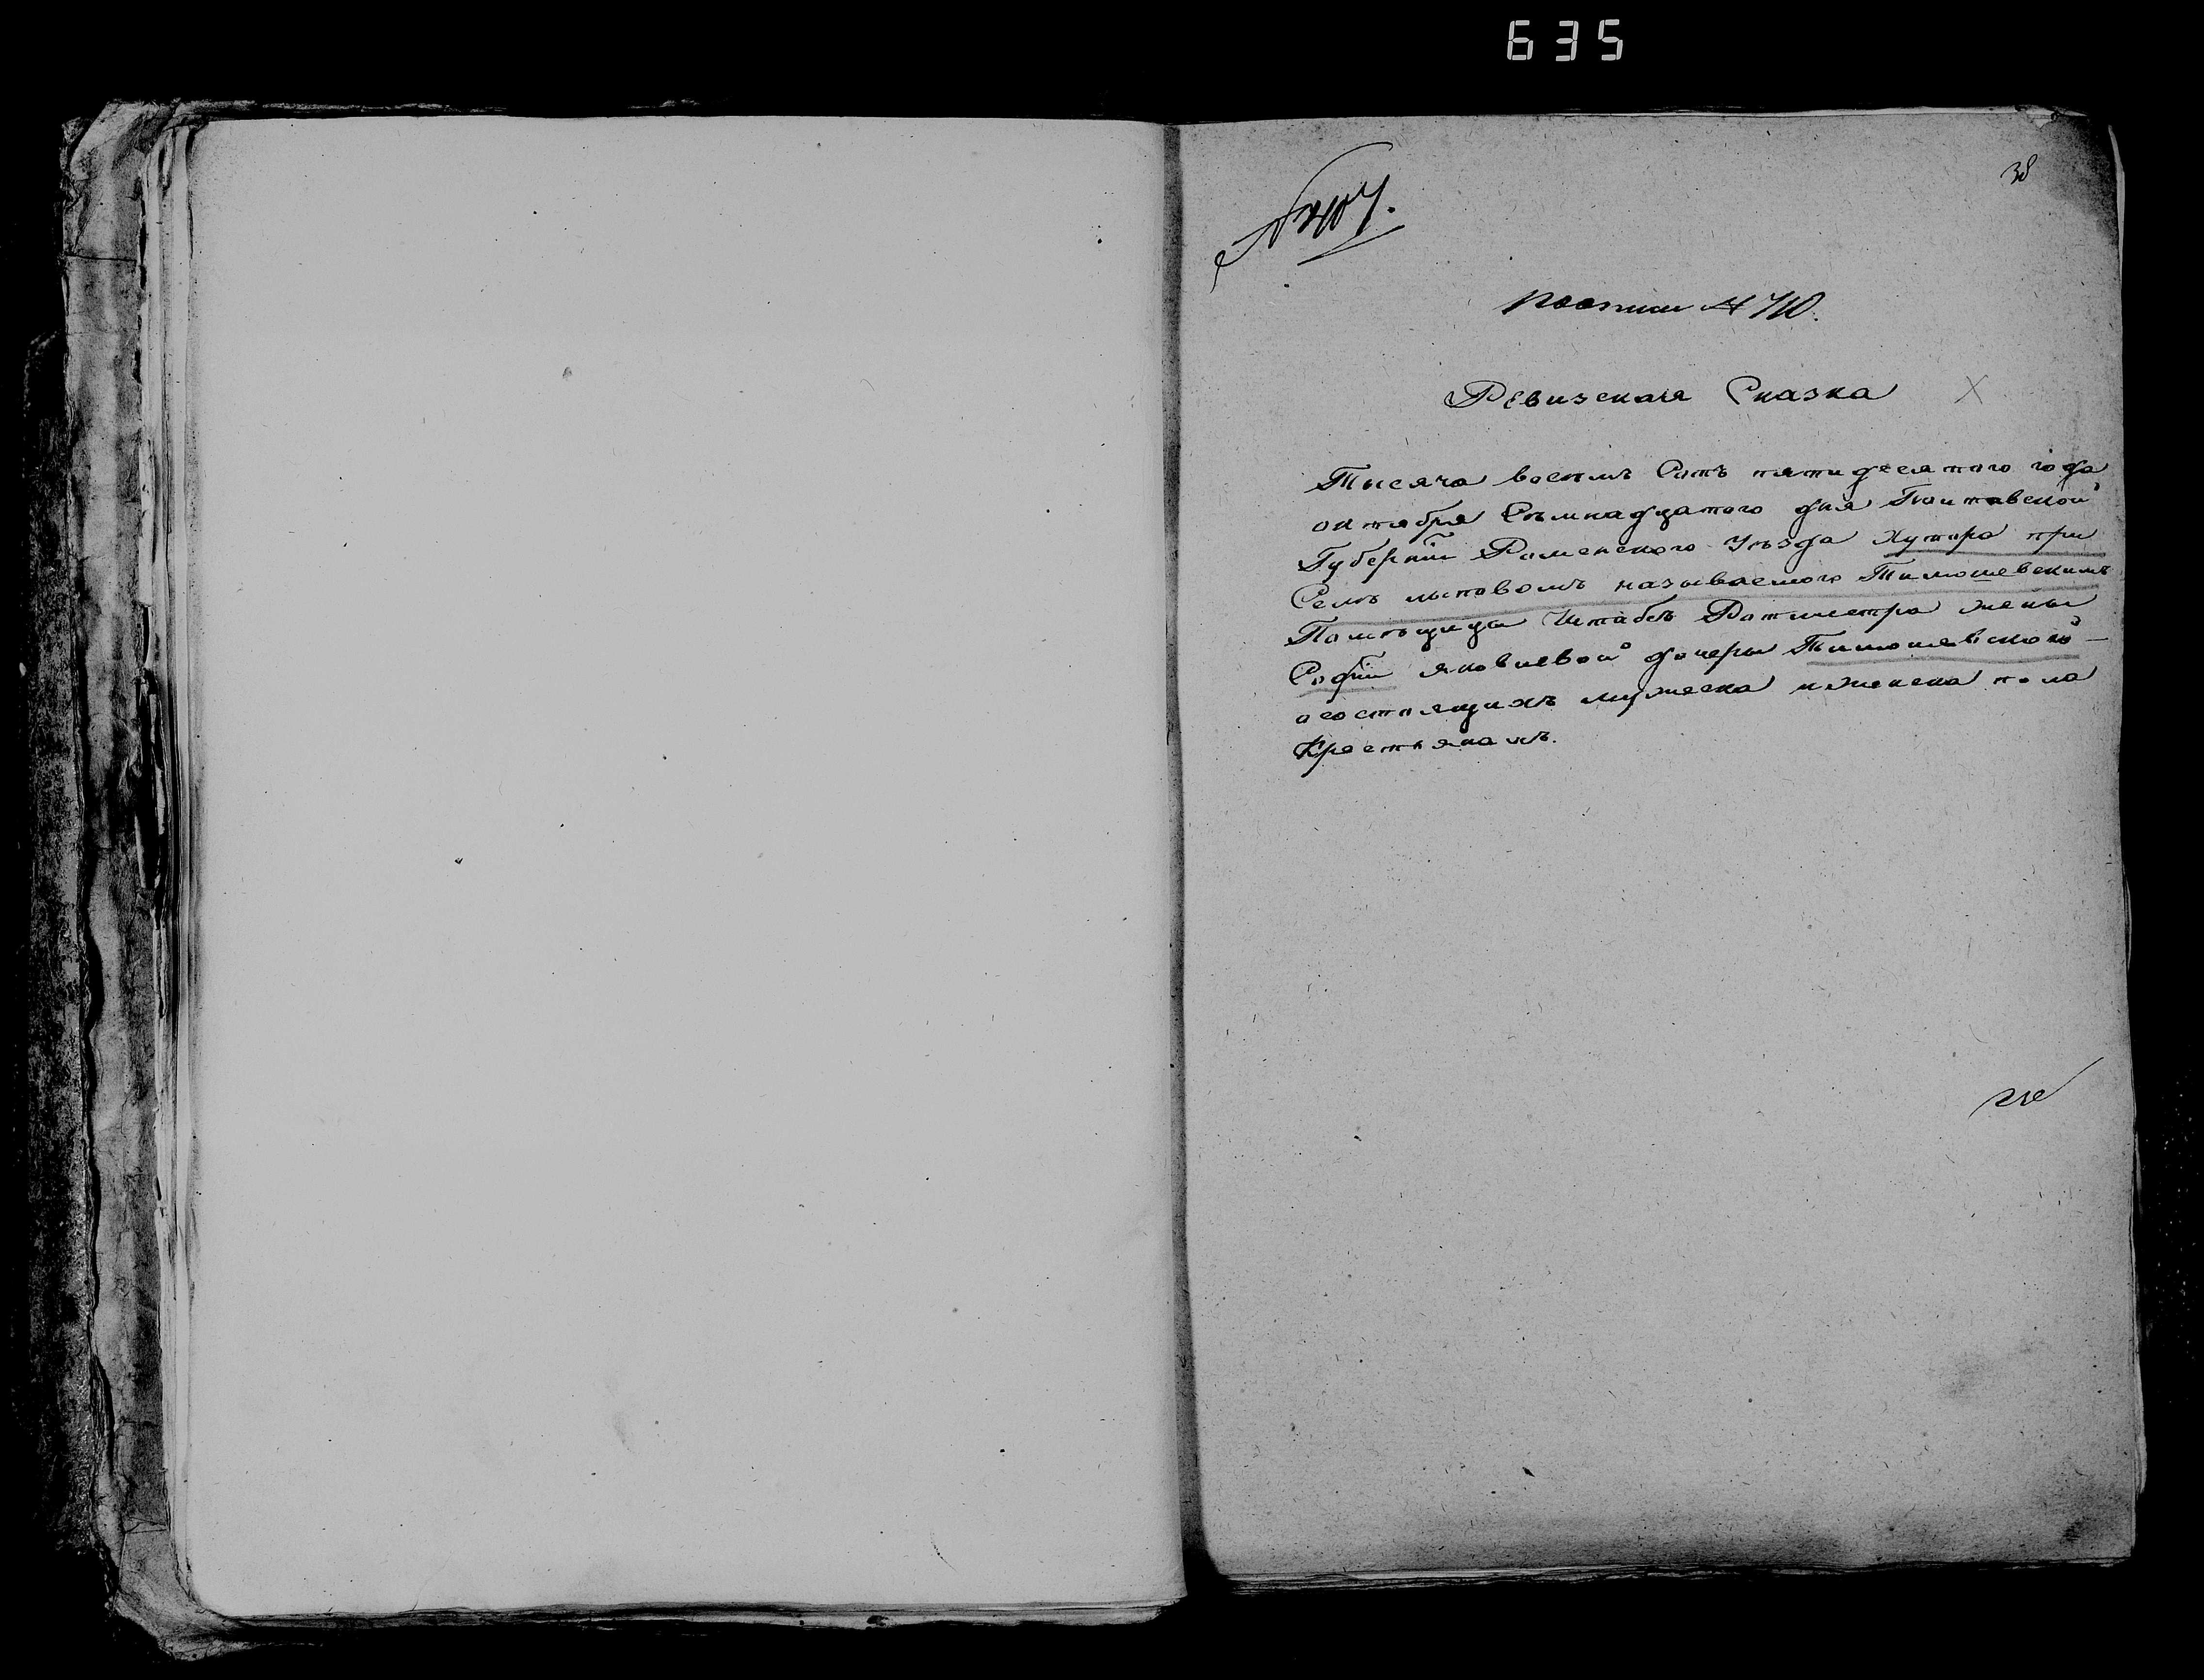 635
38
№ 407.
По описи № 710.
Ревизская Сказка
Тысяча восемь Сотъ пятидесятого года
октября Съмнадцатого дня Полтавской
Губерніи Роменского Уъзда Хутора при
Селъ Липовомъ называемого Тимошевскимъ
Помъщицы Штабсъ Ротмистра жены
Софіи Яковлевой дочери Тимошевской
о состоящихъ мужеска и женска пола
Крестьянахъ.